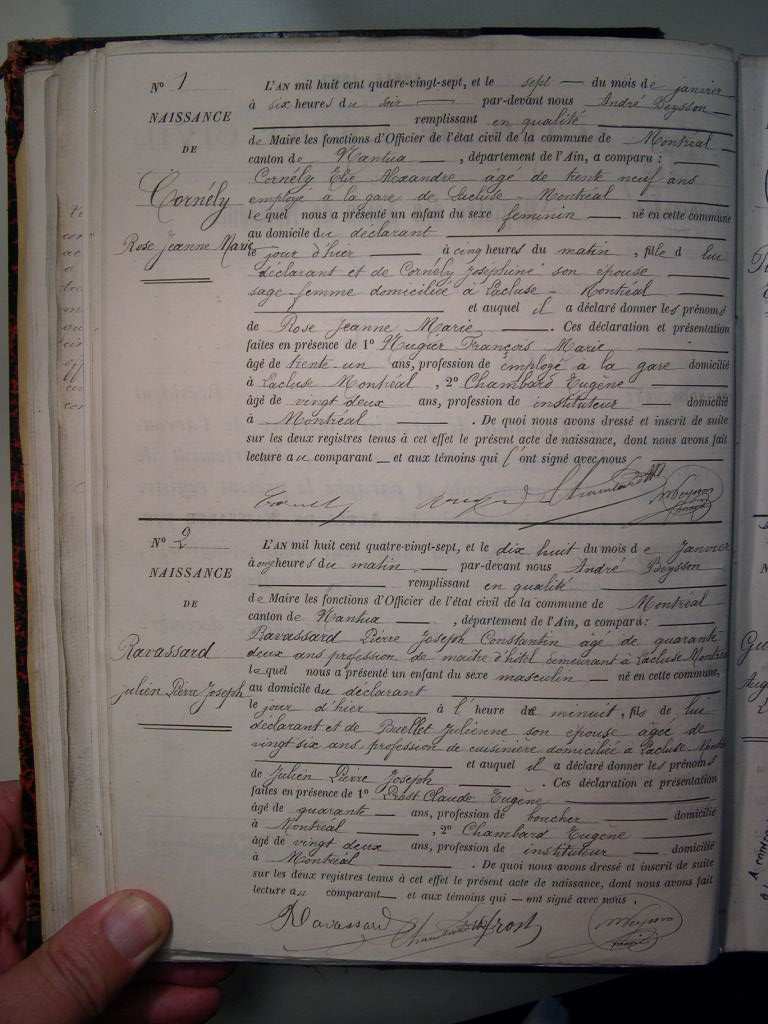 N° 1
NAISSANCE
DE
Cornély
Rose Jeanne Marie
L'AN mil huit cent quatre-vingt-sept, et le sept du mois de janvier
à six heures du soir par-devant nous André Beysson
remplissant en qualité
de Maire les fonctions d'Officier de l'état civil de la commune de Montréal
canton de Nantua, département de l'Ain, a comparu :
Cornély Elie Alexandre âgé de trente neuf ans
employé à la gare de Lacluse - Montréal
lequel nous a présenté un enfant du sexe feminin né en cette commune
au domicile du déclarant
le jour d'hier à cinq heures du matin, fille d lui
déclarant et de Cornély Josephine son épouse
sage-femme domiciliée à Lacluse - Montréal
et auquel il a déclaré donner les prénoms
de Rose Jeanne Marie. Ces déclaration et présentation
faites en présence de 1° Hugier François Marie
âgé de trente-un ans, profession de employé à la gare domicilié
à Lacluse Montréal, 2° Chambard Eugène
âgé de vingt deux ans, profession de instituteur domicilié
à Montréal. De quoi nous avons dressé et inscrit de suite
sur les deux registres tenus à cet effet le présent acte de naissance, dont nous avons fait
lecture au comparant et aux témoins qui l'ont signé avec nous
N° 2
NAISSANCE
DE
Ravassard
Julien Pierre Joseph
L'AN mil huit cent quatre-vingt-sept, et le dix huit du mois de Janvier
à onze heures du matin par-devant nous André Beysson
remplissant en qualité
de Maire les fonctions d'Officier de l'état civil de la commune de Montréal
canton de Nantua, département de l'Ain, a comparu :
Ravassard Pierre Joseph Constantin âgé de quarante
deux ans profession de maître d'hôtel demeurant à Lacluse Montréal
lequel nous a présenté un enfant du sexe masculin né en cette commune,
au domicile du déclarant
le jour d'hier à l'heure de minuit, fils de lui
déclarant et de Buellet Julienne son épouse âgée de
vingt six ans profession de cuisinière domiciliée à Lacluse
et auquel il a déclaré donner les prénoms
de Julien Pierre Joseph. Ces déclaration et présentation
faites en présence de 1° Prost Claude Eugène
âgé de quarante ans, profession de boucher domicilié
à Montréal, 2° Chambard Eugene
âgé de vingt deux ans, profession de instituteur domicilié
à Montréal. De quoi nous avons dressé et inscrit de suite
sur les deux registres tenus à cet effet le présent acte de naissance, dont nous avons fait
lecture au comparant et aux témoins qui ont signé avec nous.
Ravassard Chambard Prost